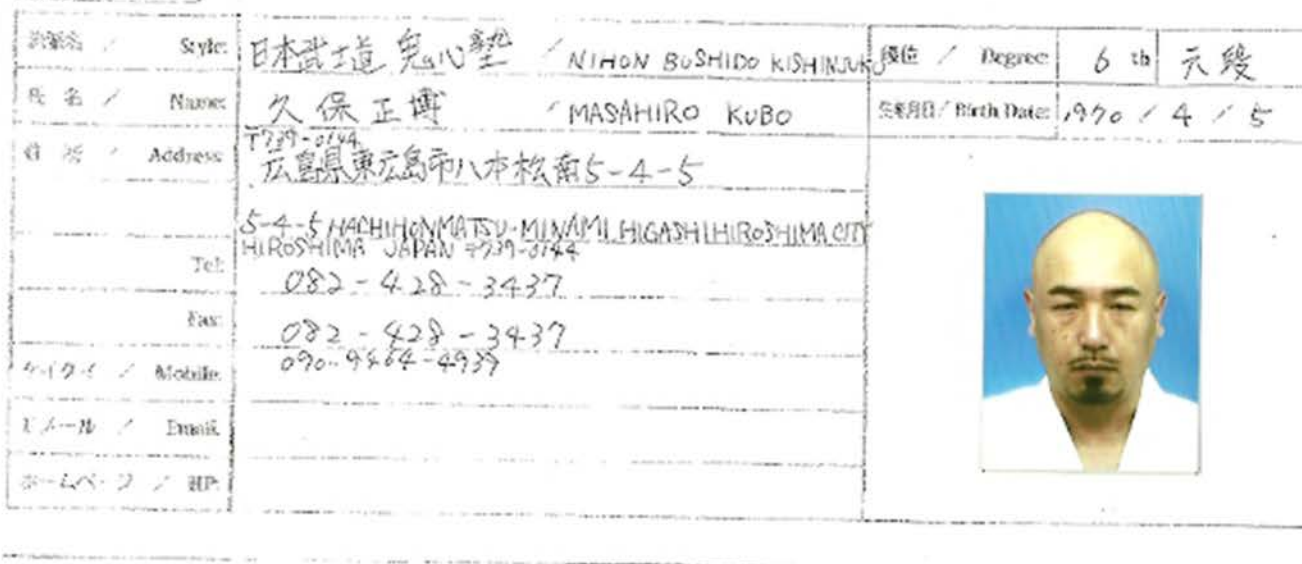 Style: 日本武士道 鬼心塾 / NIHON BUSHIDO KISHINJUKU 段位 / Degree: 6 th 六段
氏名 / Name: 久保正博 / MASAHIRO KUBO 生年月日 / Birth Date: 1970 / 4 / 5
〒739-0144
住所 / Address: 広島県東広島市八本松南5-4-5
5-4-5 HACHIHONMATSU-MINAMI HIGASHIHIROSHIMA CITY
HIROSHIMA JAPAN 〒739-0144
Tel: 082-428-3437
Fax: 082-428-3437
ケイタイ / Mobile:
Eメール / Email:
ホームページ / HP: